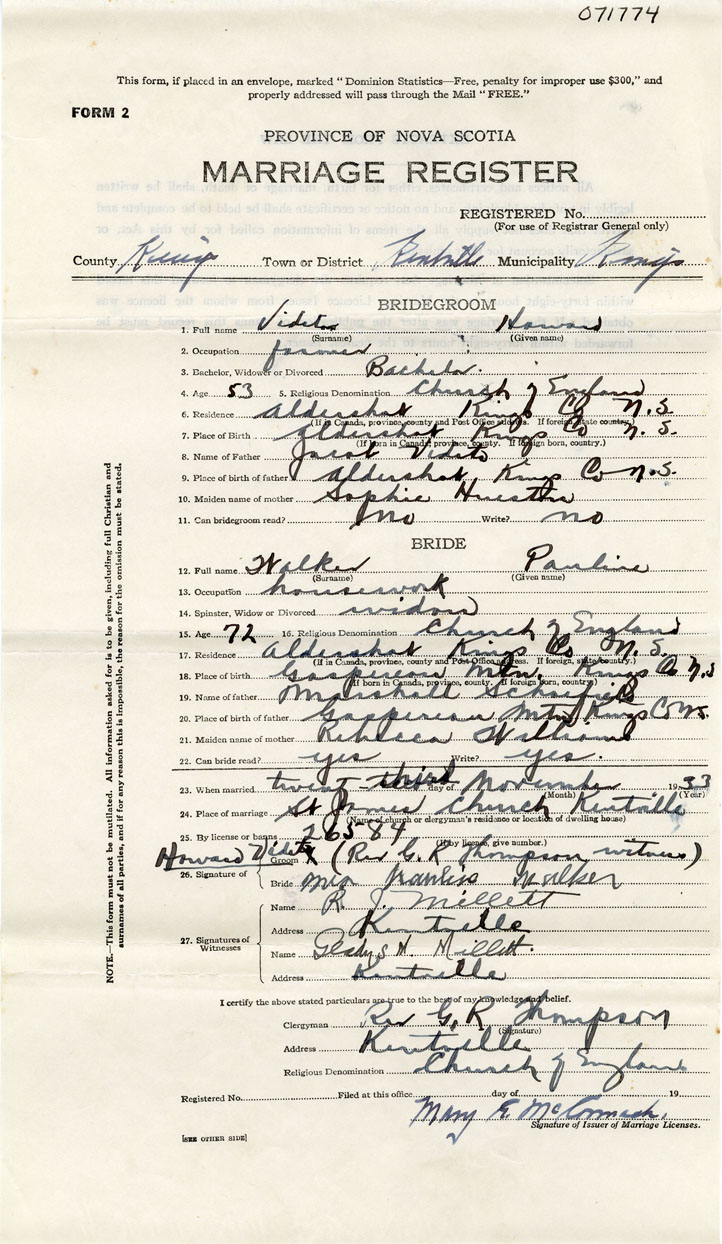 071774
This form, if placed in an envelope, marked "Dominion Statistics—Free, penalty for improper use $300," and
properly addressed will pass through the Mail "FREE."
FORM 2
PROVINCE OF NOVA SCOTIA
MARRIAGE REGISTER
REGISTERED No.
(For use of Registrar General only)
County Kings Town or District Kentville Municipality Kings
BRIDEGROOM
1. Full name Vidito Howard
(Surname) (Given name)
2. Occupation farmer
3. Bachelor, Widower or Divorced Bachelor.
4. Age 53 5. Religious Denomination Church of England
6. Residence Aldershot Kings Co N.S.
(If in Canada, province, county and Post Office address. If foreign, state country.)
7. Place of Birth Aldershot Kings Co N.S.
(If born in Canada, province, county. If foreign born, country.)
8. Name of Father Vidito
9. Place of birth of father Aldershot Kings Co N.S.
10. Maiden name of mother Sophie
11. Can bridegroom read? no Write? no
BRIDE
12. Full name Walker Pauline
(Surname) (Given name)
13. Occupation housework
14. Spinster, Widow or Divorced widow
15. Age 72 16. Religious Denomination Church of England
17. Residence Aldershot Kings Co N.S.
(If in Canada, province, county and Post Office address. If foreign, state country.)
18. Place of Birth Gaspereau Mtn. Kings Co N.S
(If born in Canada, province, county. If foreign born, country.)
19. Name of father Marshall
20. Place of birth of father Gaspereau Mtn Kings Co N.S.
21. Maiden name of mother Rebecca
22. Can bride read? yes Write? yes.
23. When married twenty third day of November 1933
(Month) (Year)
24. Place of marriage St James Church Kentville
(Name of church or clergyman's residence or location of dwelling house)
25. By license or banns 26584
(If by license, give number.)
26. Signature of
Groom Howard Vidito X (Rev G. R Thompson witness)
Bride Mrs Pauline Walker
27. Signatures of Witnesses
Name R. J. Millett
Address Kentville
Name Gladys H. Millett.
Address Kentville
I certify the above stated particulars are true to the best of my knowledge and belief.
Clergyman Rev G. R Thompson
(Signature)
Address Kentville
Religious Denomination Church of England
Registered No. Filed at this office day of 19
Mary E. McCormack.
Signature of Issuer of Marriage Licenses.
[SEE OTHER SIDE]
NOTE.—This form must not be mutilated. All information asked for is to be given, including full Christian and
surnames of all parties, and if for any reason this is impossible, the reason for the omission must be stated.